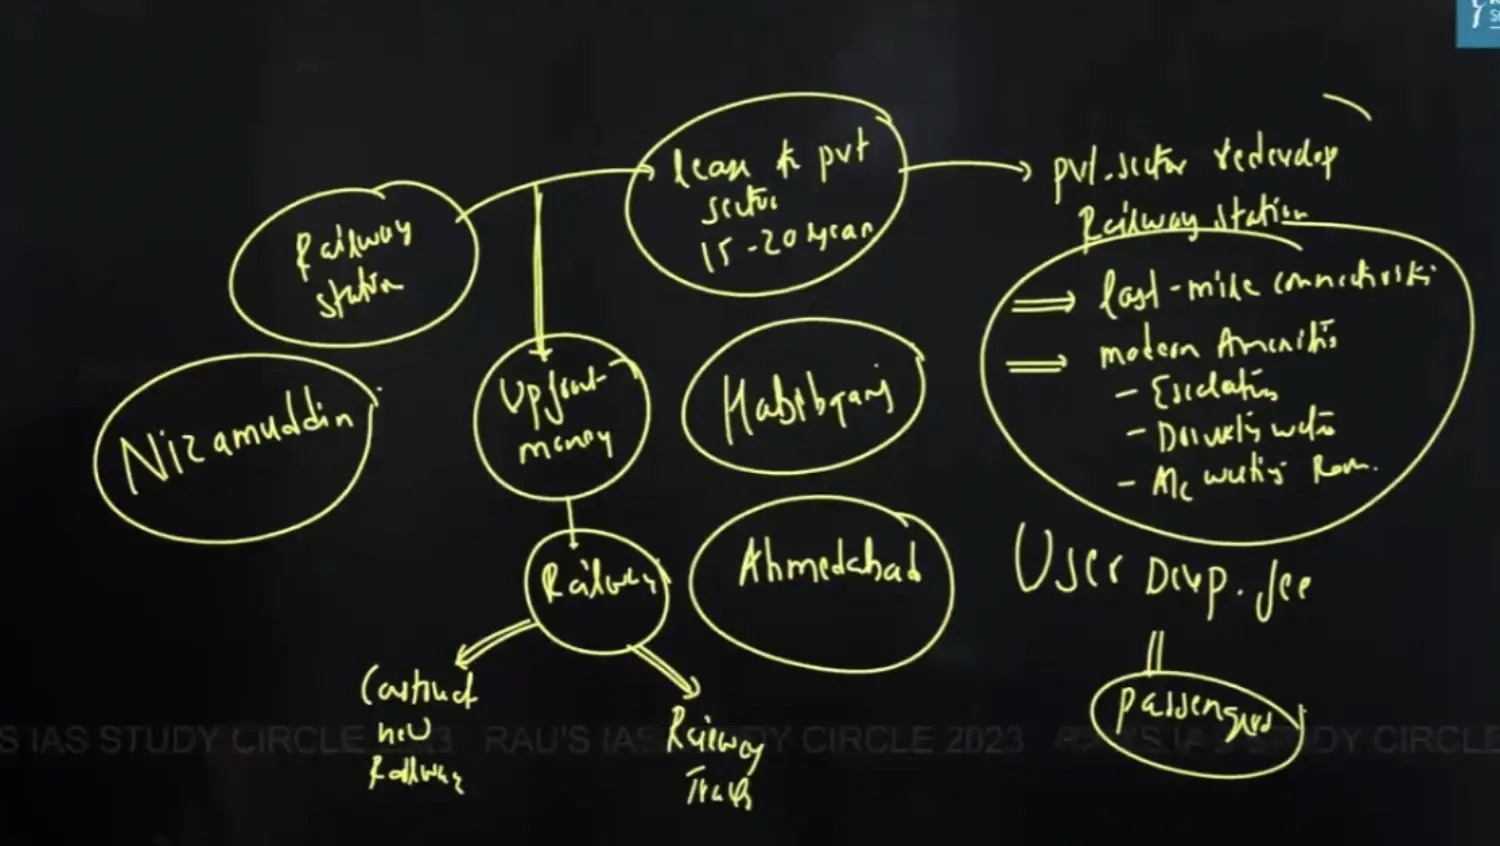 Railway
station
lease to pvt
sector
15-20 year
pvt. sector redevelop
Railway station
last-mile
modern Amenities
- Escalators
-
- AC waiting Room.
Nizamuddin
Upfront
money
Habibganj
Railway
Ahmedabad
User Devp. fee
passengers
Construct
new
Railway
Railway
Track
S IAS STUDY CIRCLE 2023 RAU'S IAS STUDY CIRCLE 2023 RAU'S IAS STUDY CIRCLE